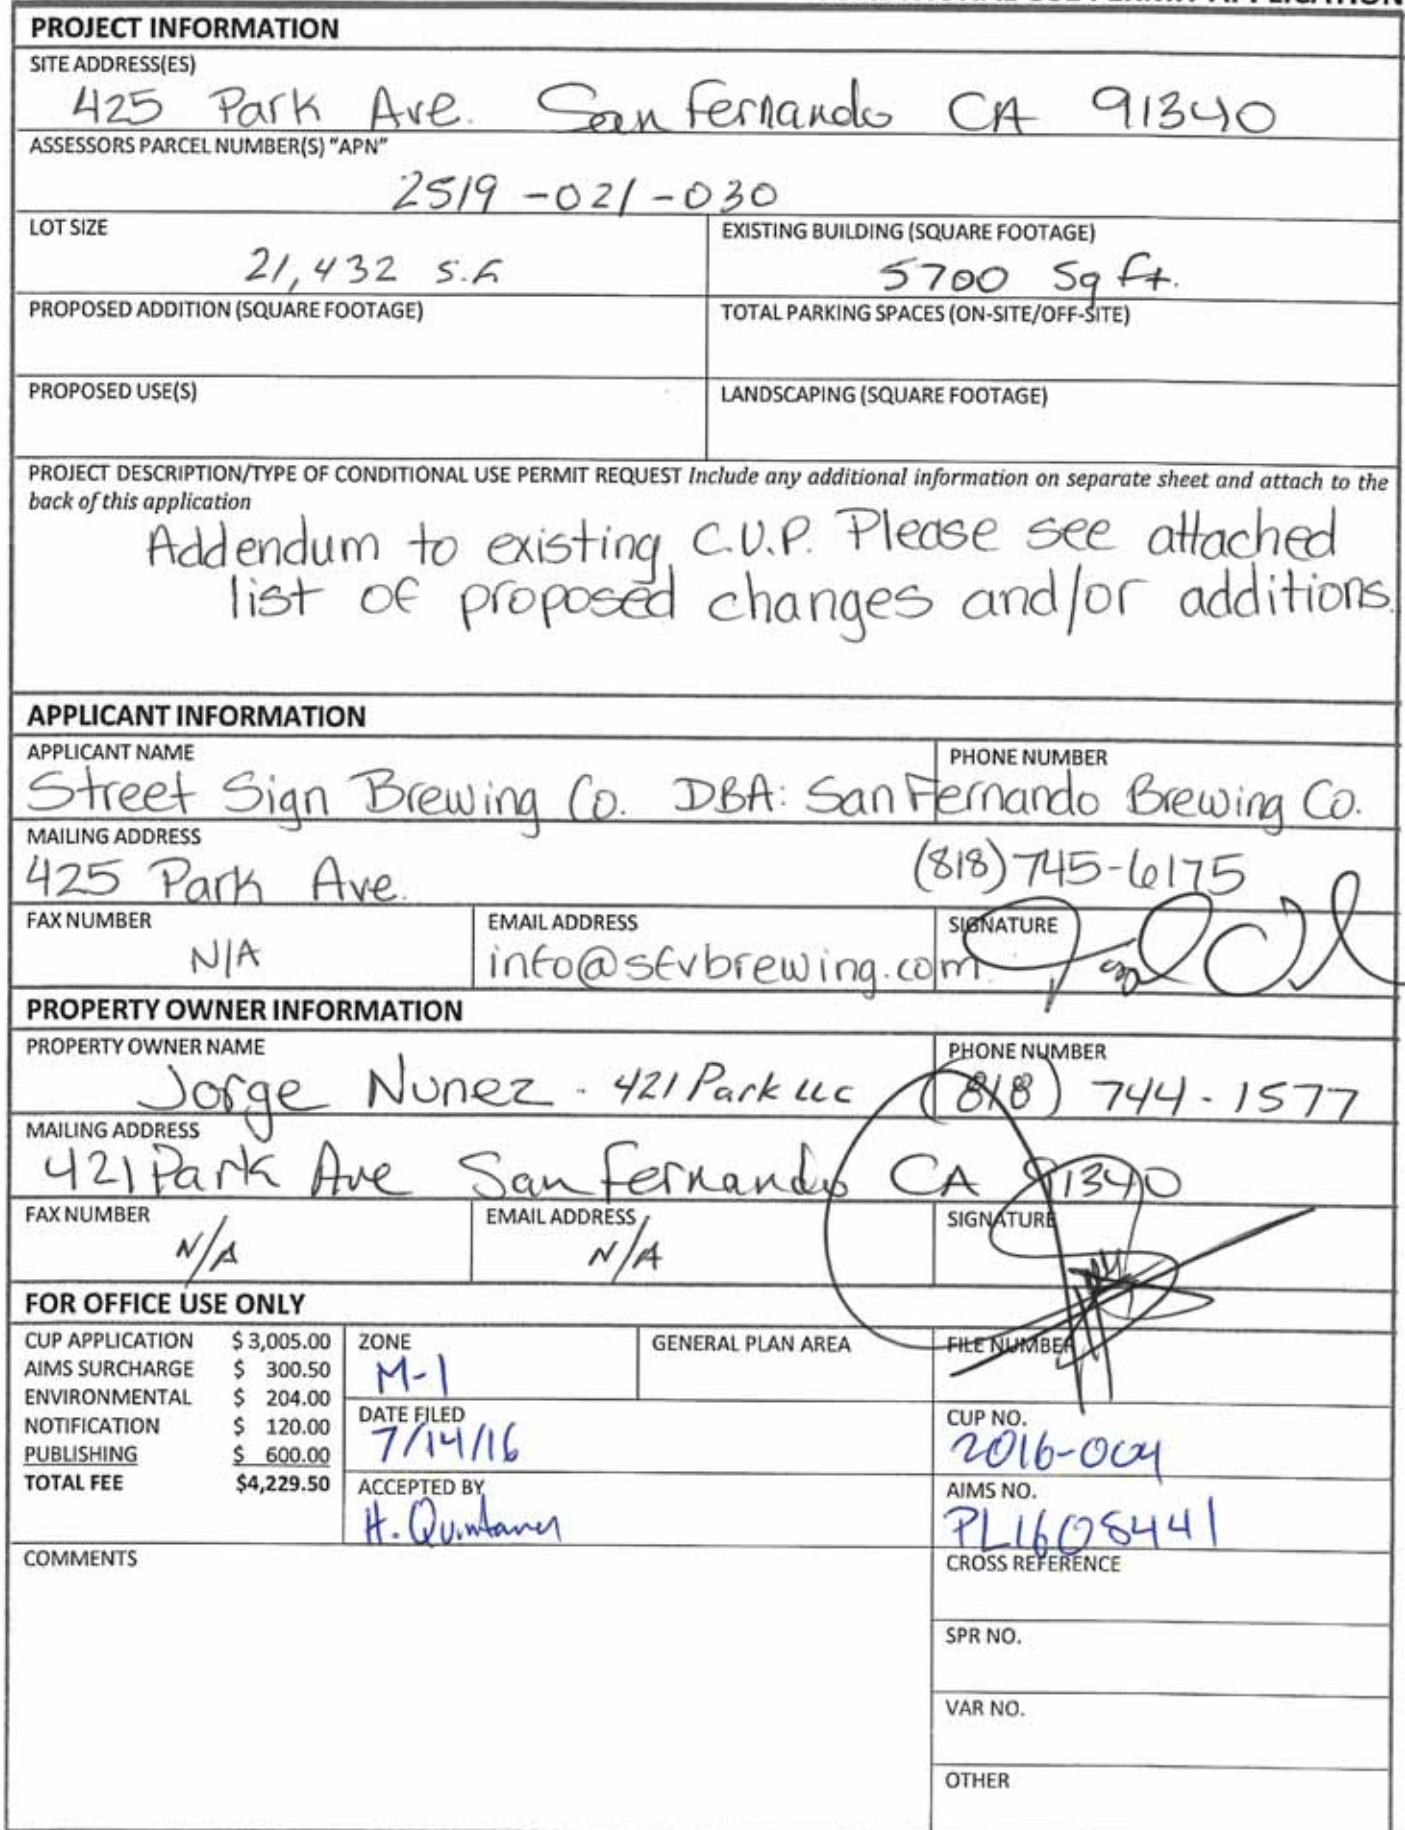 PERMIT APPLICATION
PROJECT INFORMATION
SITE ADDRESS(ES)
425 Park Ave. San Fernando CA 91340
ASSESSORS PARCEL NUMBER(S) "APN"
2519-021-030
LOT SIZE
21,432 s.f.
EXISTING BUILDING (SQUARE FOOTAGE)
5700 Sq Ft.
PROPOSED ADDITION (SQUARE FOOTAGE)
TOTAL PARKING SPACES (ON-SITE/OFF-SITE)
PROPOSED USE(S)
LANDSCAPING (SQUARE FOOTAGE)
PROJECT DESCRIPTION/TYPE OF CONDITIONAL USE PERMIT REQUEST Include any additional information on separate sheet and attach to the
back of this application
Addendum to existing C.U.P. Please see attached
list of proposed changes and/or additions.
APPLICANT INFORMATION
APPLICANT NAME
PHONE NUMBER
Street Sign Brewing Co. DBA: San Fernando Brewing Co.
MAILING ADDRESS
425 Park Ave.
(818)745-6175
FAX NUMBER
N/A
EMAIL ADDRESS
info@sfvbrewing.com
SIGNATURE
PROPERTY OWNER INFORMATION
PROPERTY OWNER NAME
Jorge Nunez - 421 Park LLC
PHONE NUMBER
(818) 744-1577
MAILING ADDRESS
421 Park Ave San Fernando CA 91340
FAX NUMBER
N/A
EMAIL ADDRESS
N/A
SIGNATURE
FOR OFFICE USE ONLY
CUP APPLICATION $ 3,005.00
AIMS SURCHARGE $ 300.50
ENVIRONMENTAL $ 204.00
NOTIFICATION $ 120.00
PUBLISHING $ 600.00
TOTAL FEE $4,229.50
ZONE
M-1
GENERAL PLAN AREA
FILE NUMBER
DATE FILED
7/14/16
CUP NO.
2016-004
ACCEPTED BY
H. Quintana
AIMS NO.
PL1608441
COMMENTS
CROSS REFERENCE
SPR NO.
VAR NO.
OTHER